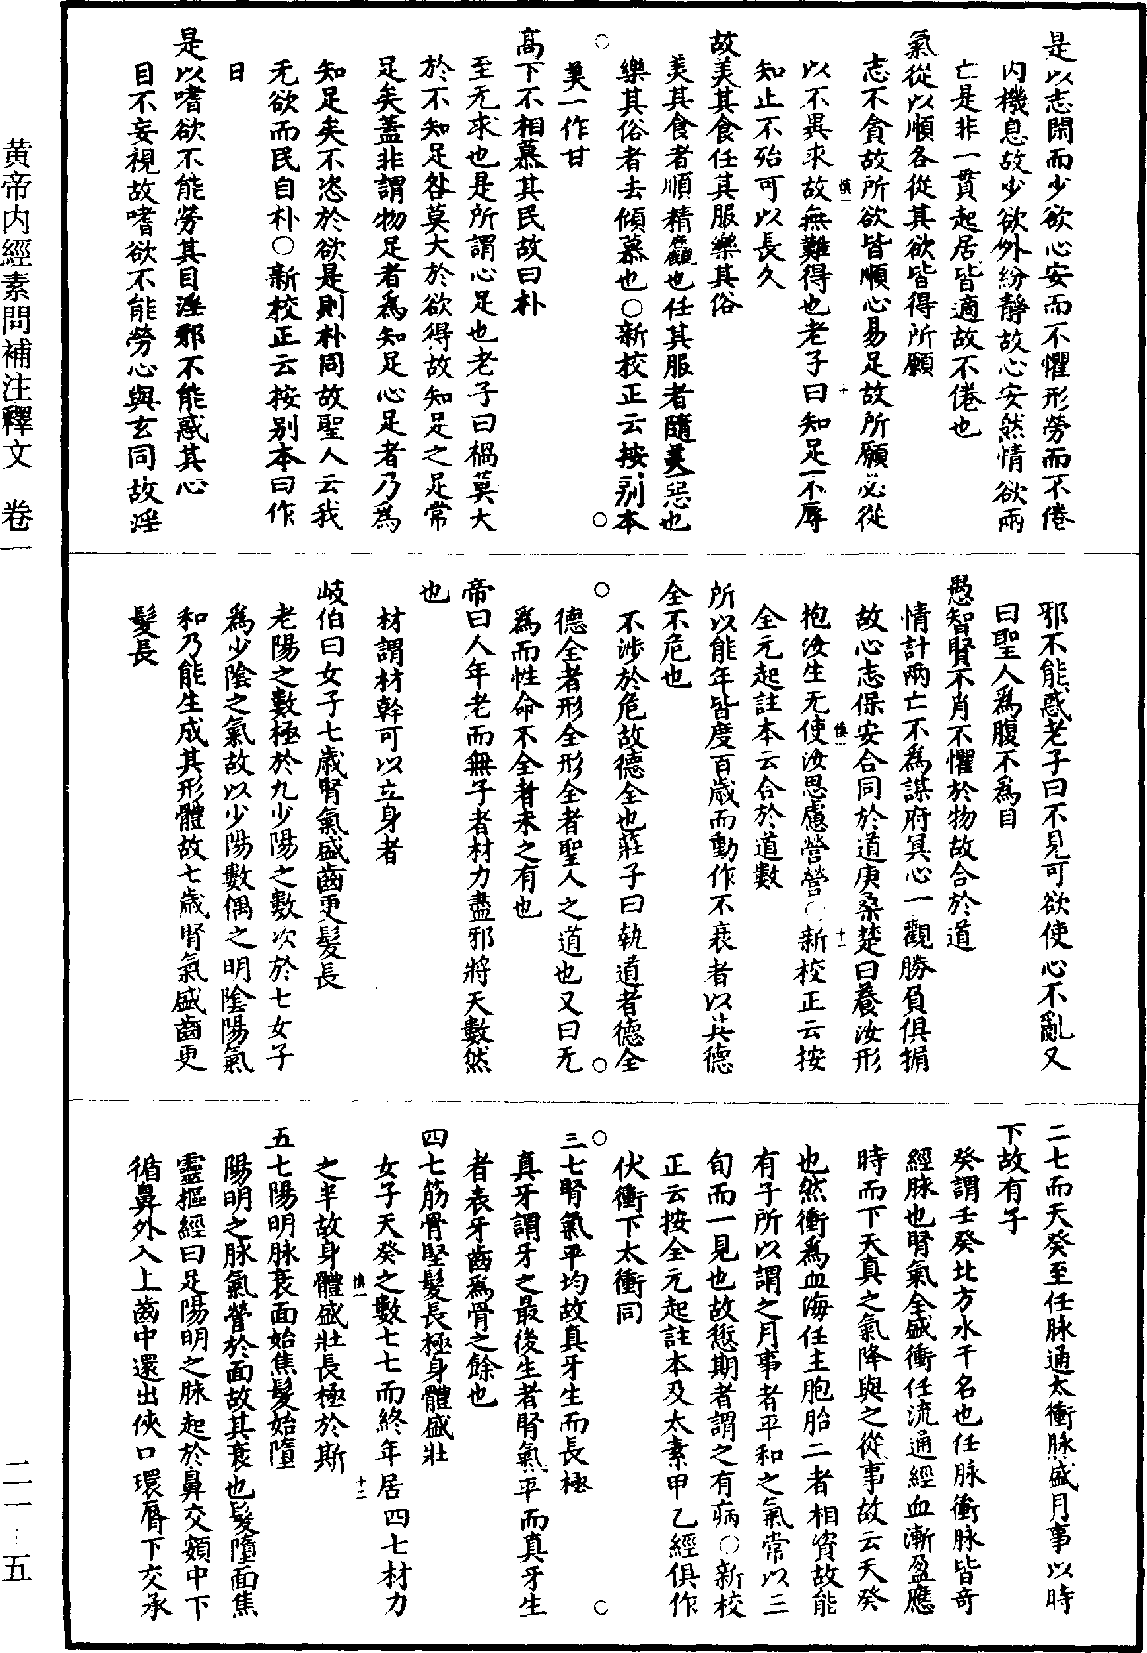 是以志閑而少欲心安而不懼形勞而不倦
內機息故少欲外紛靜故心安然情欲兩
亡是非一貫起居皆適故不倦也
氣從以順各從其欲皆得所願
志不貪故所欲皆順心易足故所願必從
以不異求故無難得也老子曰知足不辱
知止不殆可以長久
故美其食任其服樂其俗
美其食者順精麤也任其服者隨美惡也
樂其俗者去傾慕也○新校正云按別本
美一作甘
高下不相慕其民故曰朴
至无求也是所謂心足也老子曰禍莫大
於不知足咎莫大於欲得故知足之足常
足矣蓋非謂物足者爲知足心足者乃爲
知足矣不恣於欲是則朴同故聖人云我
无欲而民自朴○新校正云按別本曰作
日
是以嗜欲不能勞其目淫邪不能惑其心
目不妄視故嗜欲不能勞心與玄同故淫
邪不能惑老子曰不見可欲使心不亂又
曰聖人爲腹不爲目
愚智賢不肖不懼於物故合於道
情計兩亡不爲謀府冥心一觀勝負俱捐
故心志保安合同於道庚桑楚曰養汝形
抱汝生无使汝思慮營營○新校正云按
全元起註本云合於道數
所以能年皆度百歲而動作不衰者以其德
全不危也
不涉於危故德全也莊子曰執道者德全
德全者形全形全者聖人之道也又曰无
爲而性命不全者未之有也
帝曰人年老而無子者材力盡邪將天數然
也
材謂材幹可以立身者
岐伯曰女子七歲腎氣盛齒更髮長
老陽之數極於九少陽之數次於七女子
爲少陰之氣故以少陽數偶之明陰陽氣
和乃能生成其形體故七歲腎氣盛齒更
髮長
二七而天癸至任脉通太衝脉盛月事以時
下故有子
癸謂壬癸北方水干名也任脉衝脉皆奇
經脉也腎氣全盛衝任流通經血漸盈應
時而下天真之氣降與之從事故云天癸
也然衝爲血海任主胞胎二者相資故能
有子所以謂之月事者平和之氣常以三
旬而一見也故愆期者謂之有病○新校
正云按全元起註本及太素甲乙經俱作
伏衝下太衝同
三七腎氣平均故真牙生而長極
真牙謂牙之最後生者腎氣平而真牙生
者表牙齒爲骨之餘也
四七筋骨堅髮長極身體盛壯
女子天癸之數七七而終年居四七材力
之半故身體盛壯長極於斯
五七陽明脉衰面始焦髮始墮
陽明之脉氣營於面故其衰也髮墮面焦
靈樞經曰足陽明之脉起於鼻交頞中下
循鼻外入上齒中還出俠口環脣下交承
慎一
十
慎一
十一
慎一
十二
黃帝內經素問補注釋文 卷一
二一·五